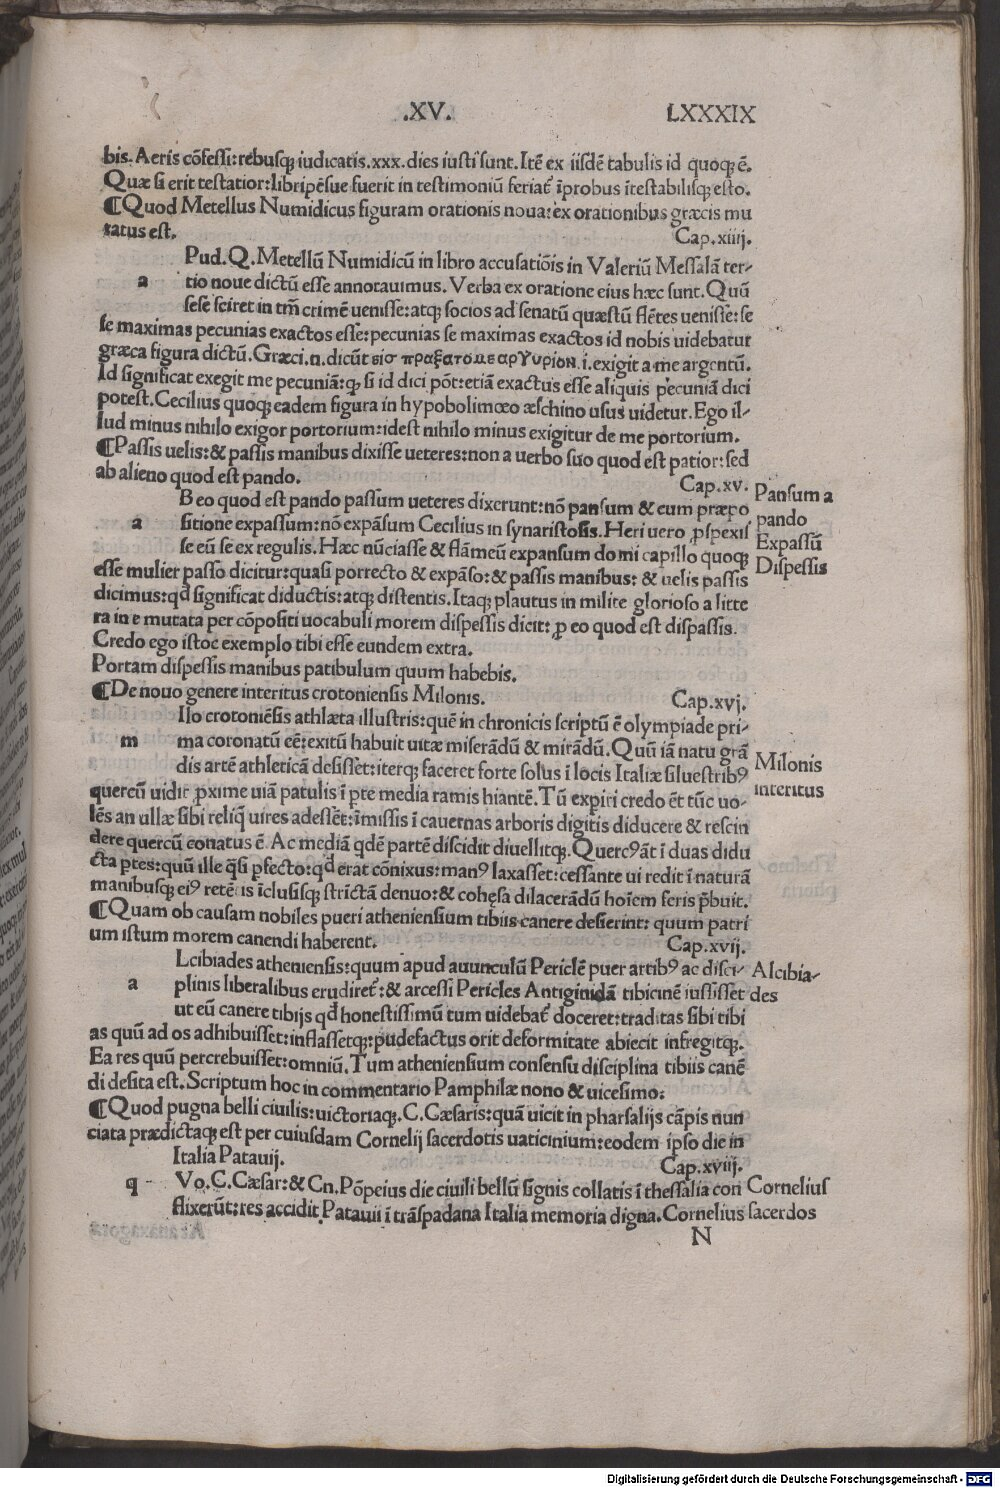 .XV. LXXXIX
bis. Aeris cōfessi: rebusq; iudicatis. xxx. dies iusti sunt. Itē ex iisdē tabulis id quoq; ē.
Quæ si erit testatior: libripēsue fuerit in testimoniū feriat̃ īprobus ītestabilisq; esto.
¶Quod Metellus Numidicus figuram orationis noua: ex orationibus græcis mu
tatus est. Cap. xiiij.
Pud. Q. Metellū Numidicū in libro accusatiōis in Valeriū Messalā ter-
a tio noue dictū esse annotauimus. Verba ex oratione eius hæc sunt. Quū
sese sciret in tm̄ crimē uenisse: atq; socios ad senatū quæstū flētes uenisse: se
se maximas pecunias exactos esse: pecunias se maximas exactos id nobis uidebatur
græca figura dictū. Græci. n. dicūt εισ πραξατομε αργυριον. i. exigit a me argentū.
Id significat exegit me pecuniā: q; si id dici pōt: etiā exactus esse aliquis pecuniā dici
potest. Cecilius quoq; eadem figura in hypobolimœo æschino usus uidetur. Ego il-
lud minus nihilo exigor portorium: idest nihilo minus exigitur de me portorium.
¶Passis uelis: & passis manibus dixisse ueteres: non a uerbo suo quod est patior: sed
ab alieno quod est pando. Cap. xv.
B eo quod est pando passum ueteres dixerunt: nō pansum & cum præpo
a sitione expassum: nō expāsum Cecilius in synaristosis. Heri uero ꝓspexis
se eū se ex regulis. Hæc nūciasse & flāmeū expansum domi capillo quoq;
esse mulier passo dicitur: quasi porrecto & expāso: & passis manibus: & uelis passis
dicimus: qd̄ significat diductis: atq; distentis. Itaq; plautus in milite glorioso a litte
ra in e mutata per cōpositi uocabuli morem dispessis dicit: ꝓ eo quod est dispassis.
Credo ego istoc exemplo tibi esse eundem extra.
Portam dispessis manibus patibulum quum habebis.
Pansum a
pando
Expassū
Dispessis
¶De nouo genere interitus crotoniensis Milonis. Cap. xvj.
Ilo crotoniēsis athlæta illustris: quē in chronicis scriptū ē olympiade pri-
m ma coronatū eē: exitū habuit uitæ miserādū & mirādū. Quū iā natu grā
dis artē athleticā desisset: iterq; faceret forte solus ī locis Italiæ siluestribꝰ
quercū uidit ꝓxime uiā patulis ī ꝑte media ramis hiantē. Tū expiri credo ēt tūc uo-
lēs an ullæ sibi reliq̄ uires adessēt: īmissis ī cauernas arboris digitis diducere & rescin
dere quercū conatus ē. Ac mediā qdē partē discidit diuellitq;. Quercꝰ āt ī duas didu
cta ꝑtes: quū ille q̄si ꝑfecto: qd̄ erat cōnixus: manꝰ laxasset: cessante ui redit ī naturā
manibusq; eiꝰ retētis īclusisq; strictā denuo: & cohęsa dilacerādū hoīem feris p̄buit.
Milonis
interitus
¶Quam ob causam nobiles pueri atheniensium tibiis canere desierint: quum patri
um istum morem canendi haberent. Cap. xvij.
Lcibiades atheniensis: quum apud auunculū Periclē puer artibꝰ ac disci-
a plinis liberalibus erudiret̃: & arcessi Pericles Antiginidā tibicinē iussisset
ut eū canere tibijs qd̄ honestissimū tum uidebat̃ doceret: traditas sibi tibi
as quū ad os adhibuisset: inflassetq;: pudefactus orit deformitate abiecit infregitq;.
Ea res quū percrebuisset: omniū. Tum atheniensium consensu disciplina tibiis canē
di desita est. Scriptum hoc in commentario Pamphilæ nono & uicesimo:
Alcibia-
des
¶Quod pugna belli ciuilis: uictoriaq;. C. Cæsaris: quā uicit in pharsalijs cāpis nun
ciata prædictaq; est per cuiusdam Cornelij sacerdotis uaticinium: eodem ipso die in
Italia Patauij. Cap. xviij.
q Vo. C. Cæsar: & Cn. Pōpeius die ciuili bellū signis collatis ī thessalia con
flixerūt: res accidit. Patauii ī trāspadana Italia memoria digna. Cornelius sacerdos
Cornelius
N
Digitalisierung gefördert durch die Deutsche Forschungsgemeinschaft - DFG